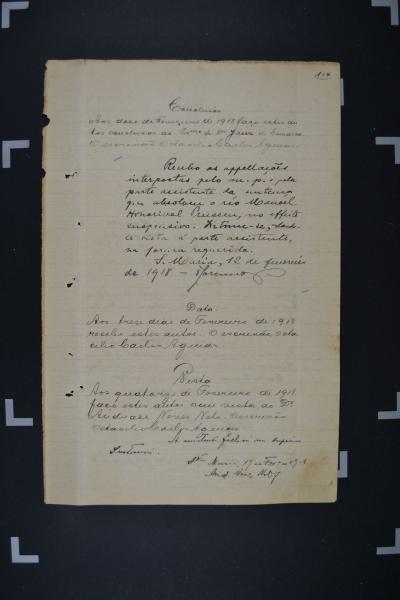 Conclusão
Aos doze de Fevereiro de 1918 faço estes au-
tos conclusos ao Exmo Sr Dr Juiz de Comarca
O escrivão Octacilio Carlos Aguiar
Recebo as appellações
interpostas pelo m. p. e pela
parte assistente da sentença
que absolveu o réo Manoel
Honorival, no effeito
suspensivo. -se,
a vista á parte assistente,
na forma requerida.
S. Maria, 12 de fevereiro
de 1918 -
Data
Aos treze dias de Fevereiro de 1918
recebi estes autos. O escrivão Octa
cilio Carlos Aguiar
Vista
Aos quatorze de Fevereiro de 1918
faço estes autos com vista ao Dr
Neves Neto. O escrivão
Octacilio Carlos Aguiar
Sta Maria, 17 de